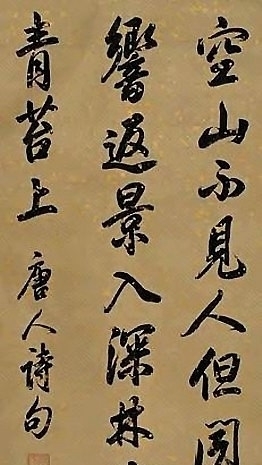 空山不見人但聞
響返景入深林
青苔上 唐人詩句